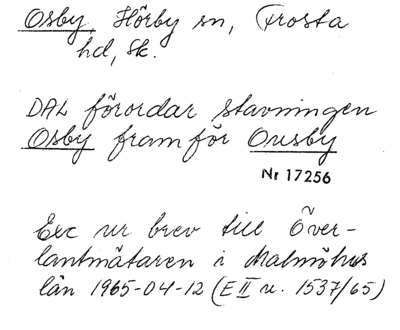 Osby, Hörby sn, Frosta
hd, Sk.
DAL förordar stavningen
Osby framför Onsby
Nr 17256
Exc ur brev till Över-
lantmätaren i Malmöhus
län 1965-04-12 (E II u. 1537/65)